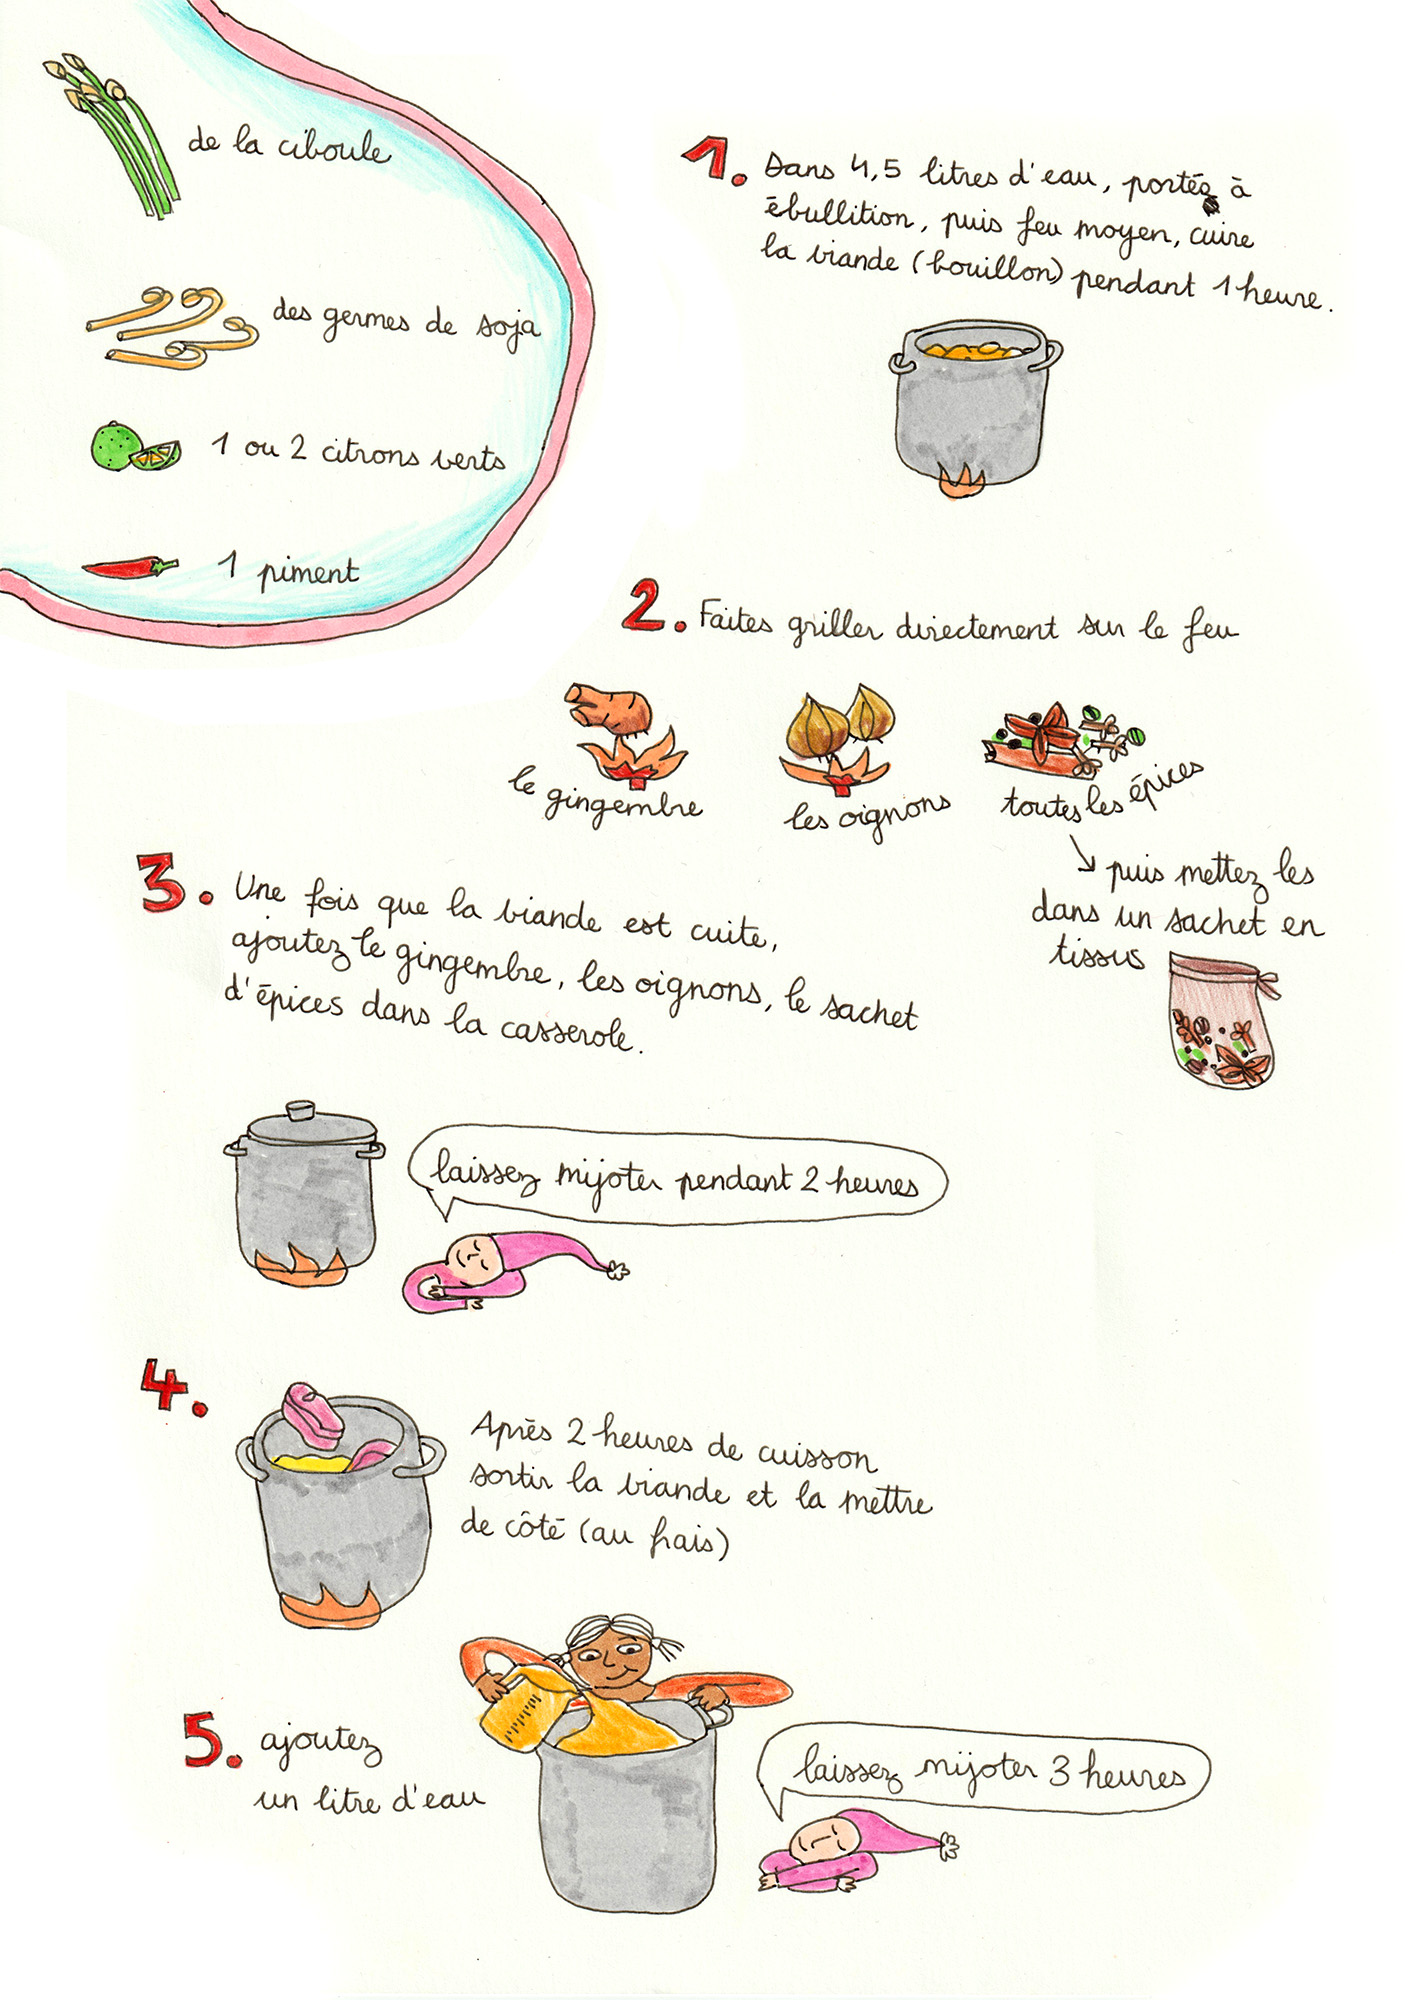 de la ciboule
des germes de soja
1 ou 2 citrons verts
1 piment
1. Dans 4,5 litres d'eau, portés à
ébullition, puis feu moyen, cuire
la viande (bouillon) pendant 1 heure.
2. Faites griller directement sur le feu
le gingembre
les oignons
toutes les épices
↘ puis mettez les
dans un sachet en
tissus
3. Une fois que la viande est cuite,
ajoutez le gingembre, les oignons, le sachet
d'épices dans la casserole.
laissez mijoter pendant 2 heures
4. Après 2 heures de cuisson
sortir la viande et la mettre
de côté (au frais)
5. ajoutez
un litre d'eau
laissez mijoter 3 heures